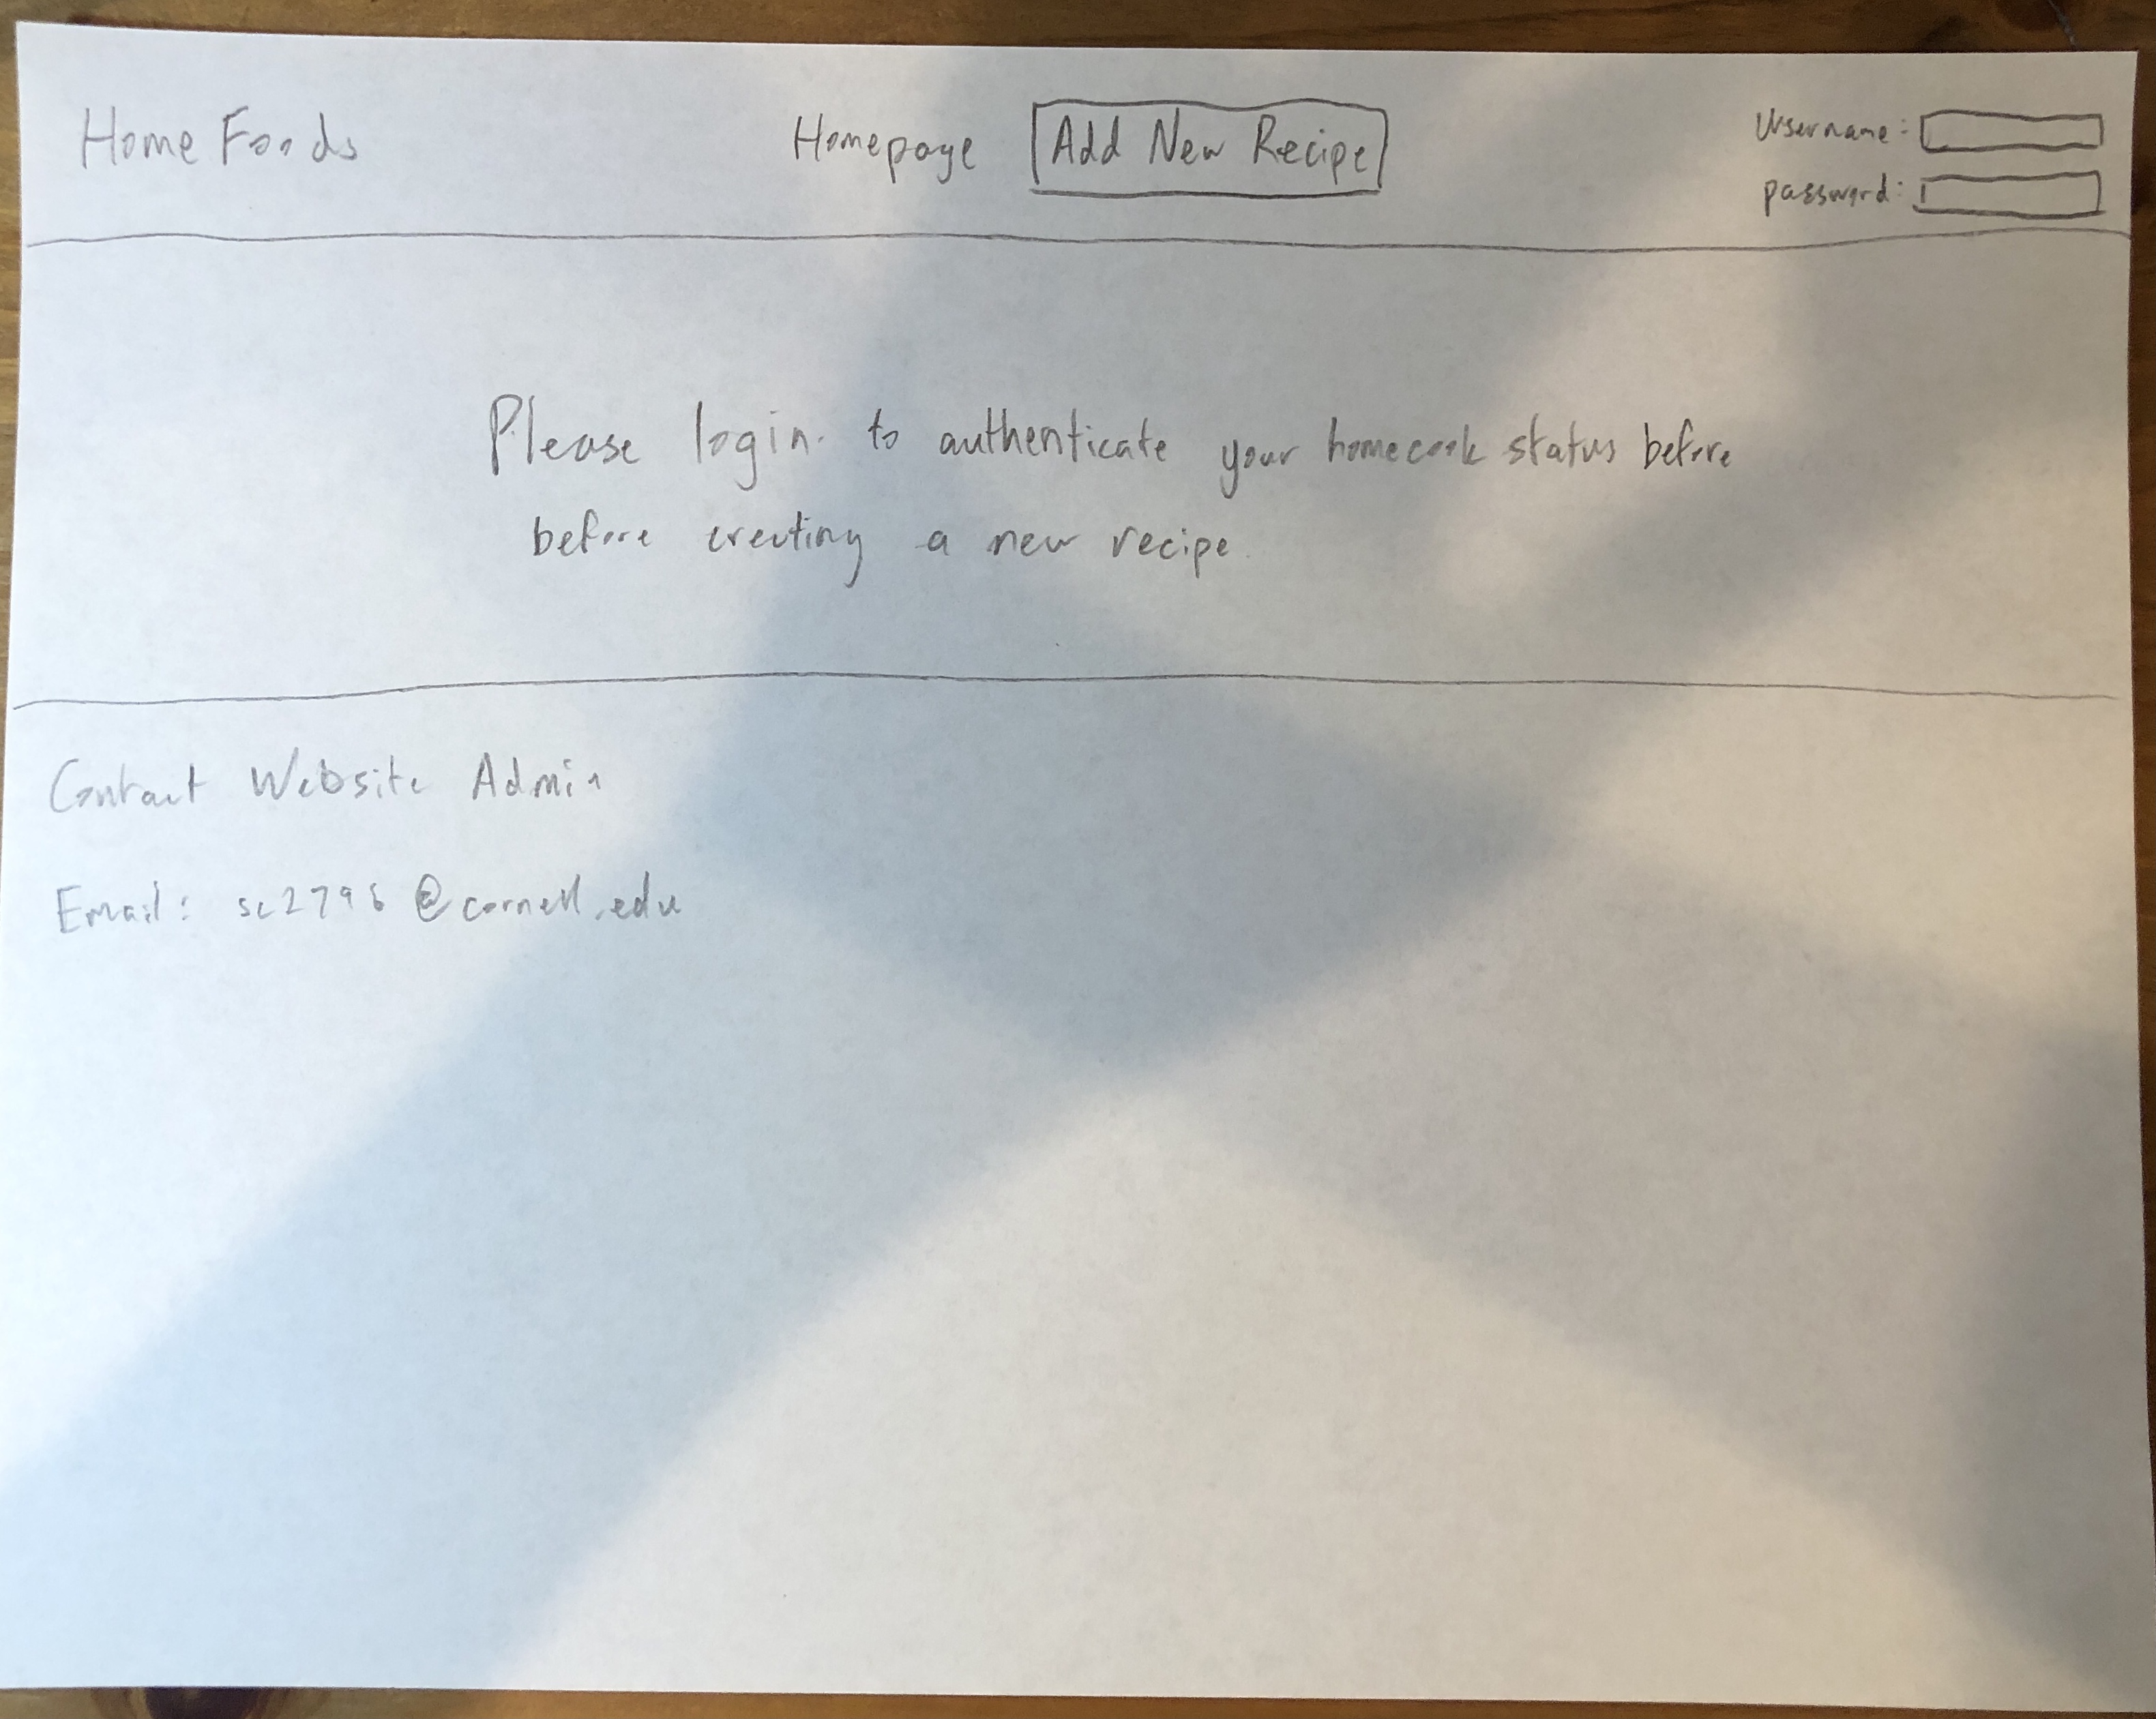 Home Foods Homepage Add New Recipe Username:
password:
Please login to authenticate your homecook status before
before creating a new recipe.
Contact Website Admin
Email: @cornell.edu